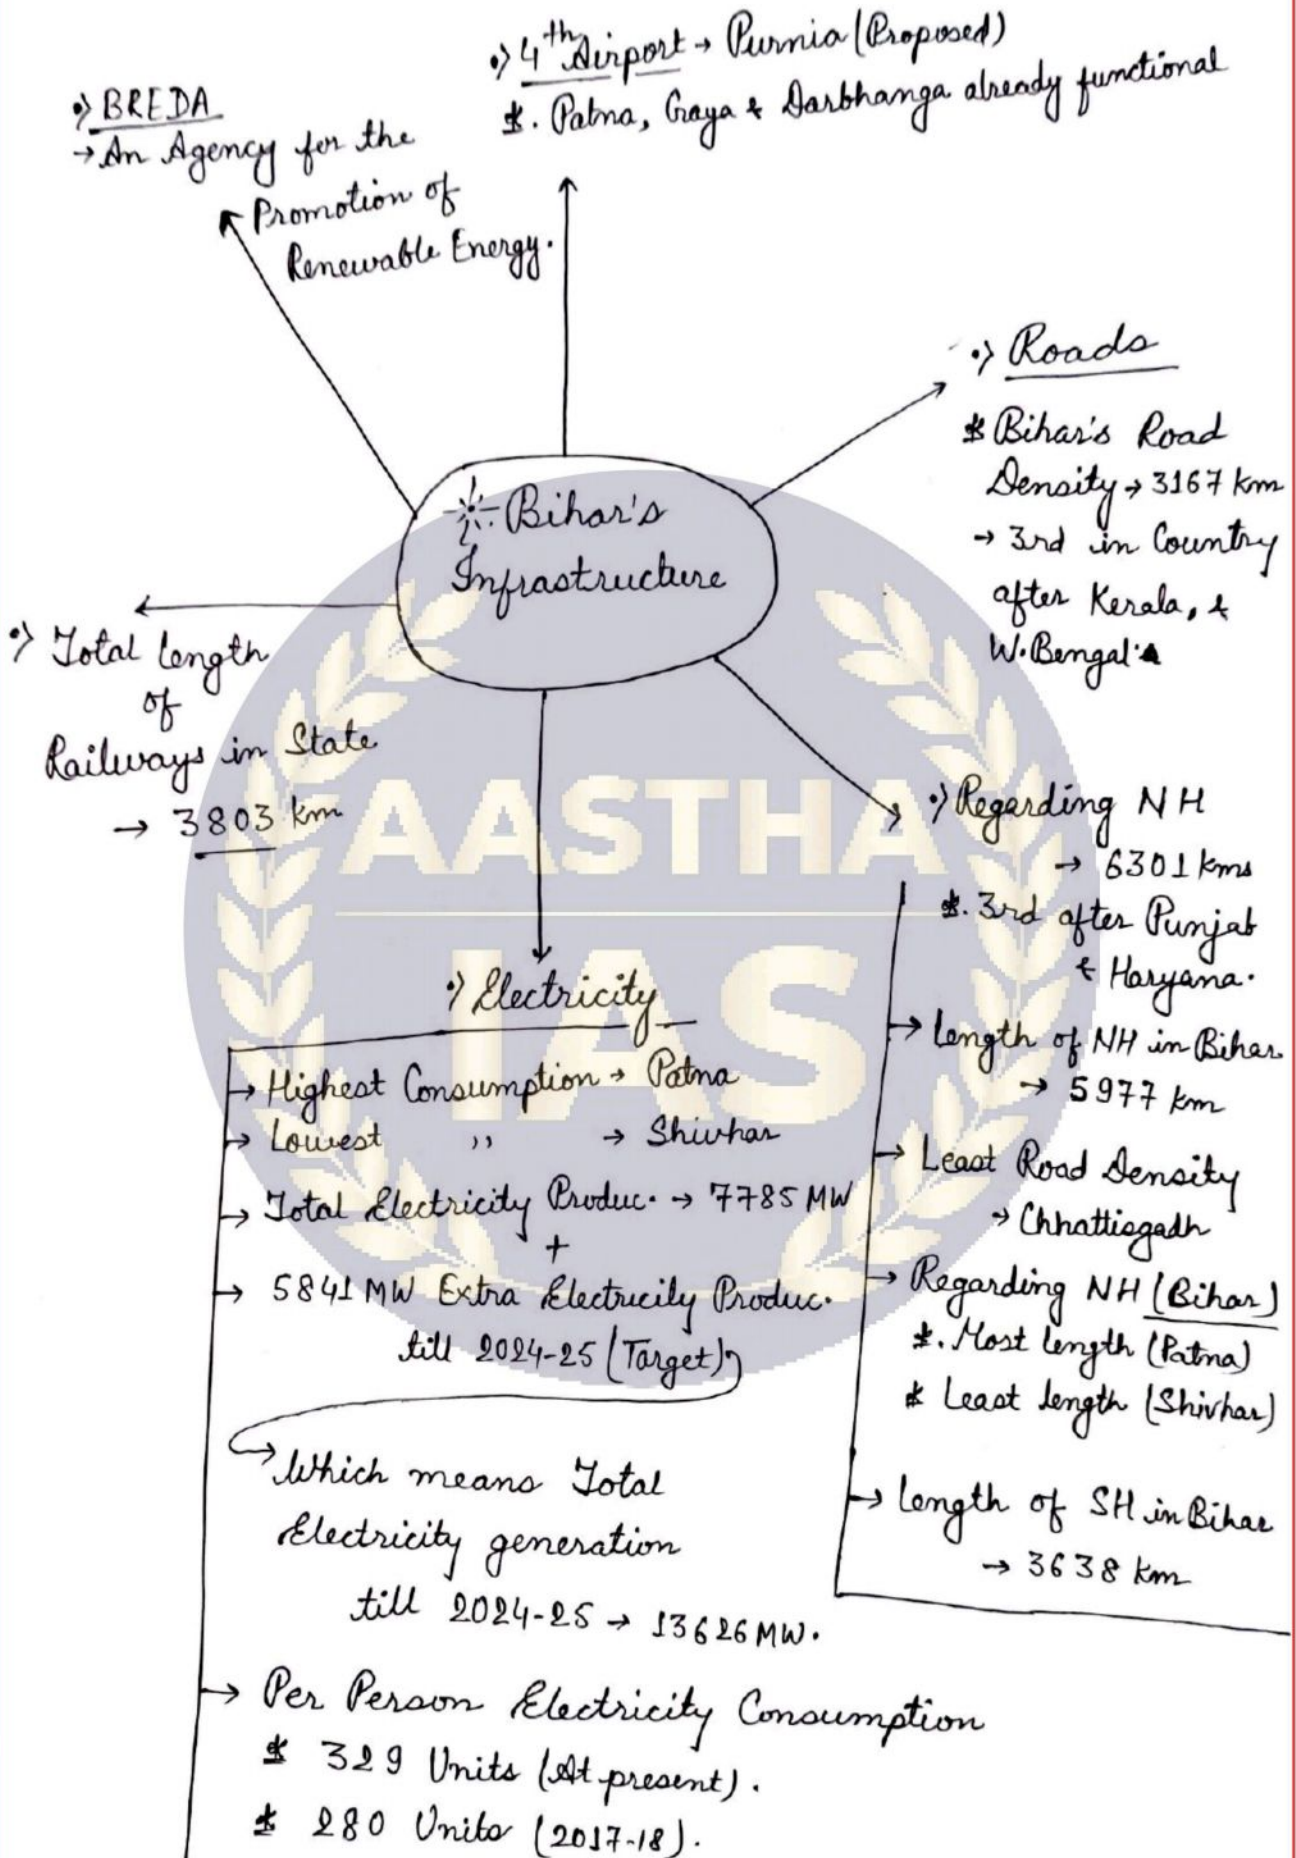 •) BREDA
→ An Agency for the
Promotion of
Renewable Energy.
•) 4th Airport → Purnia (Proposed)
*. Patna, Gaya & Darbhanga already functional
•) Roads
* Bihar's Road
Density → 3167 km
→ 3rd in Country
after Kerala, &
W. Bengal.
Bihar's
Infrastructure
•) Total length
of
Railways in State
→ 3803 km
•) Regarding NH
→ 6301 kms
*. 3rd after Punjab
& Haryana.
→ Length of NH in Bihar
→ 5977 km
→ Least Road Density
→ Chhattisgadh
→ Regarding NH (Bihar)
*. Most length (Patna)
* Least length (Shivhar)
→ Length of SH in Bihar
→ 3638 km
•) Electricity
→ Highest Consumption → Patna
→ Lowest ,, → Shivhar
→ Total Electricity Produc. → 7785 MW
+
→ 5841 MW Extra Electrucily Produc.
till 2024-25 (Target)
→ Which means Total
Electricity generation
till 2024-25 → 13626 MW.
→ Per Person Electricity Consumption
* 329 Units (At present).
* 280 Units (2017-18).
AASTHA
IAS